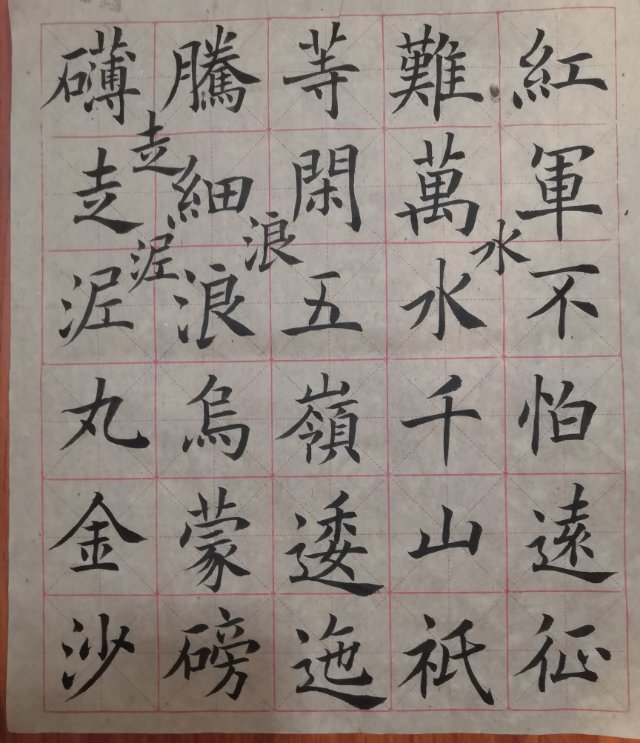 紅軍不怕遠征
水
難萬水千山祇
等閑五嶺逶迤
浪
騰細浪烏蒙磅
走
泥
礴走泥丸金沙